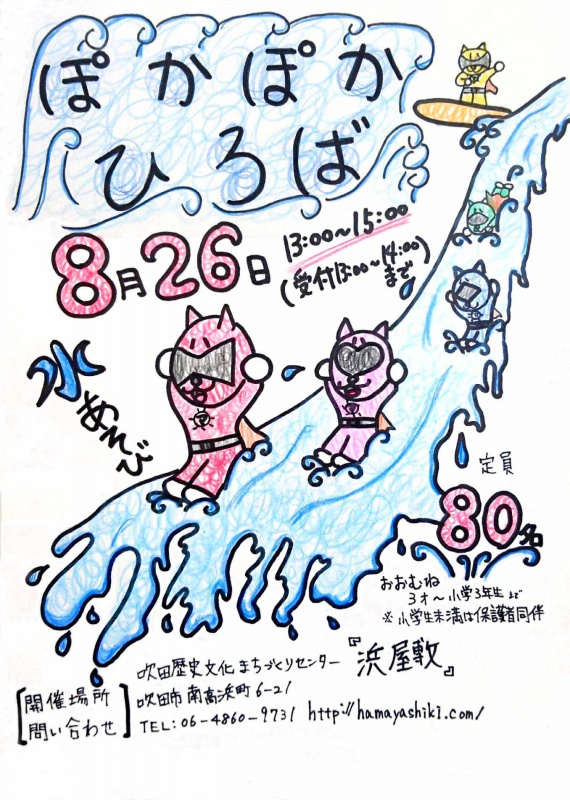 ぽかぽか
ひろば
8月26日
13:00〜15:00
(受付13:00〜14:00
まで)
水あそび
定員
80名
おおむね
3才〜小学3年生まで
※小学生未満は保護者同伴
[開催場所
問い合わせ]
吹田歴史文化まちづくりセンター『浜屋敷』
吹田市南高浜町6-21
TEL:06-4860-9731 http://hamayashiki.com/